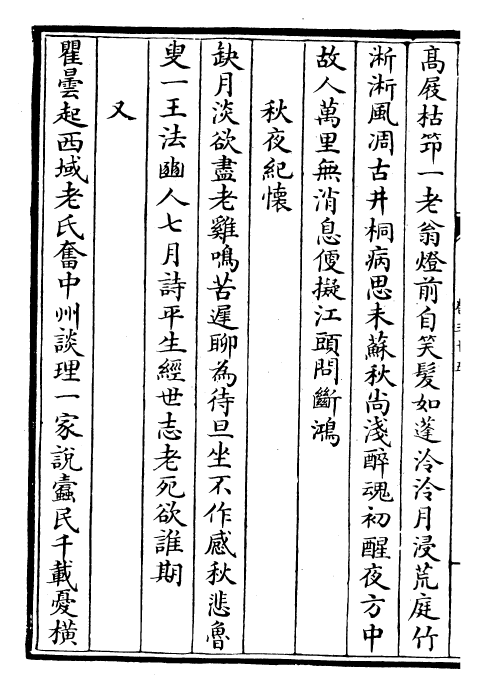 高屐枯笻一老翁燈前自笑髪如蓬泠泠月浸荒庭竹
淅淅風凋古井桐病思未蘇秋尚淺醉魂初醒夜方中
故人萬里無消息便擬江頭問斷鴻
秋夜紀懷
缺月淡欲盡老雞鳴苦遲聊為待旦坐不作感秋悲魯
叟一王法豳人七月詩平生經世志老死欲誰期
又
瞿曇起西域老氏奮中州談理一家說蠧民千載憂橫